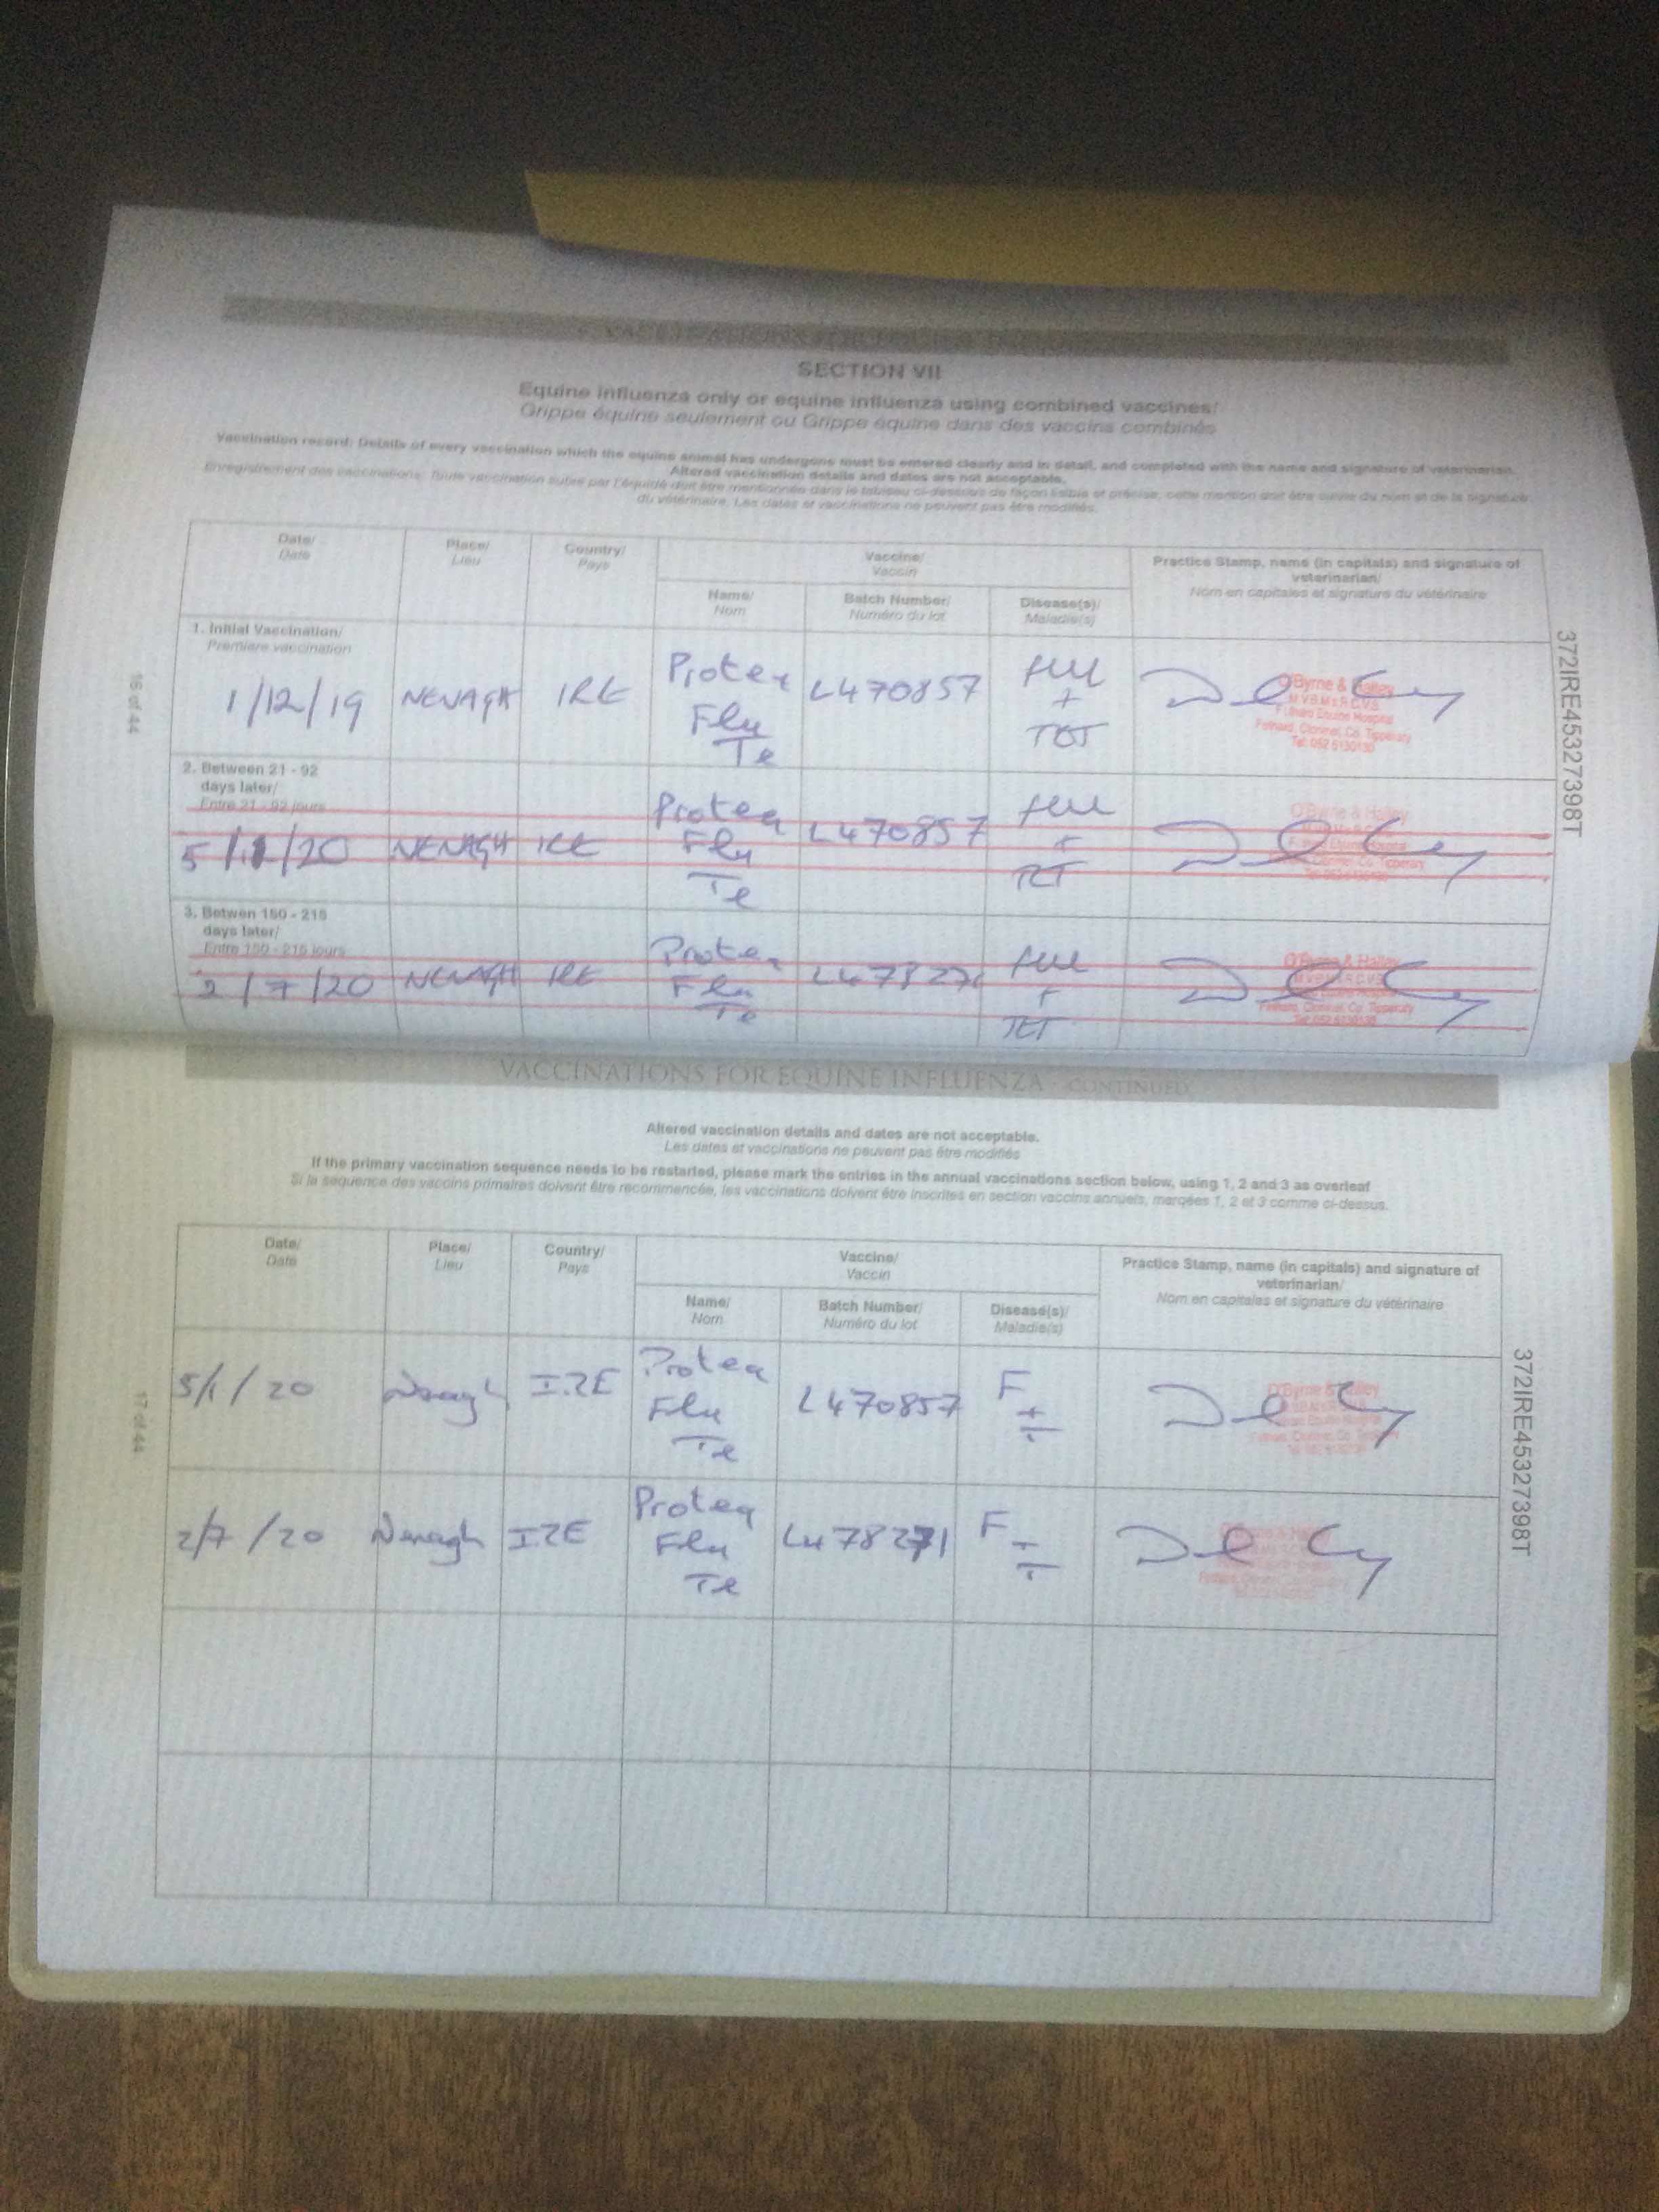 SECTION VII
Equine influenza only or equine influenza using combined vaccines/
Grippe équine seulement ou Grippe équine dans des vaccins combinés
Vaccination record: Details of every vaccination which the equine animal has undergone must be entered clearly and in detail, and completed with the name and signature of veterinarian.
Altered vaccination details and dates are not acceptable.
Enregistrement des vaccinations: Toute vaccination subie par l'équidé doit être mentionnée dans le tableau ci-dessous de façon lisible et précise, cette mention doit être suivie du nom et de la signature
du vétérinaire. Les dates et vaccinations ne peuvent pas être modifiés.
Date/
Date
Place/
Lieu
Country/
Pays
Vaccine/
Vaccin
Practice Stamp, name (in capitals) and signature of
veterinarian/
Nom en capitales et signature du vétérinaire
Name/
Nom
Batch Number/
Numéro du lot
Disease(s)/
Maladie(s)
1. Initial Vaccination/
Premiere vaccination
1/12/19
NENAGH
IRE
Proteq
Flu
Te
L470857
FLU
+
TET
O'Byrne & Halley
M.V.B.M.R.C.V.S.
Fethard, Clonmel, Co. Tipperary
2. Between 21 - 92
days later/
Entre 21 - 92 jours
NENAGH
IRE
Proteq
Flu
Te
L470857
FLU
+
TET
3. Betwen 150 - 215
days later/
Entre 150 - 215 jours
2/7/20
NENAGH
IRE
Proteq
Flu
Te
FLU
+
TET
O'Byrne & Halley
Fethard, Clonmel, Co. Tipperary
16 of 44
372IRE45327398T
VACCINATIONS FOR EQUINE INFLUENZA - CONTINUED
Altered vaccination details and dates are not acceptable.
Les dates et vaccinations ne peuvent pas être modifiés
If the primary vaccination sequence needs to be restarted, please mark the entries in the annual vaccinations section below, using 1, 2 and 3 as overleaf
Si la sequence des vaccins primaires doivent être recommencée, les vaccinations doivent être inscrites en section vaccins annuels, marqées 1, 2 et 3 comme ci-dessus.
Date/
Date
Place/
Lieu
Country/
Pays
Vaccine/
Vaccin
Practice Stamp, name (in capitals) and signature of
veterinarian/
Nom en capitales et signature du vétérinaire
Name/
Nom
Batch Number/
Numéro du lot
Disease(s)/
Maladie(s)
5/1/20
Nenagh
IRE
Proteq
Flu
Te
L470857
F
+
T
2/7/20
Nenagh
IRE
Proteq
Flu
Te
L478271
F
+
T
17 of 44
372IRE45327398T